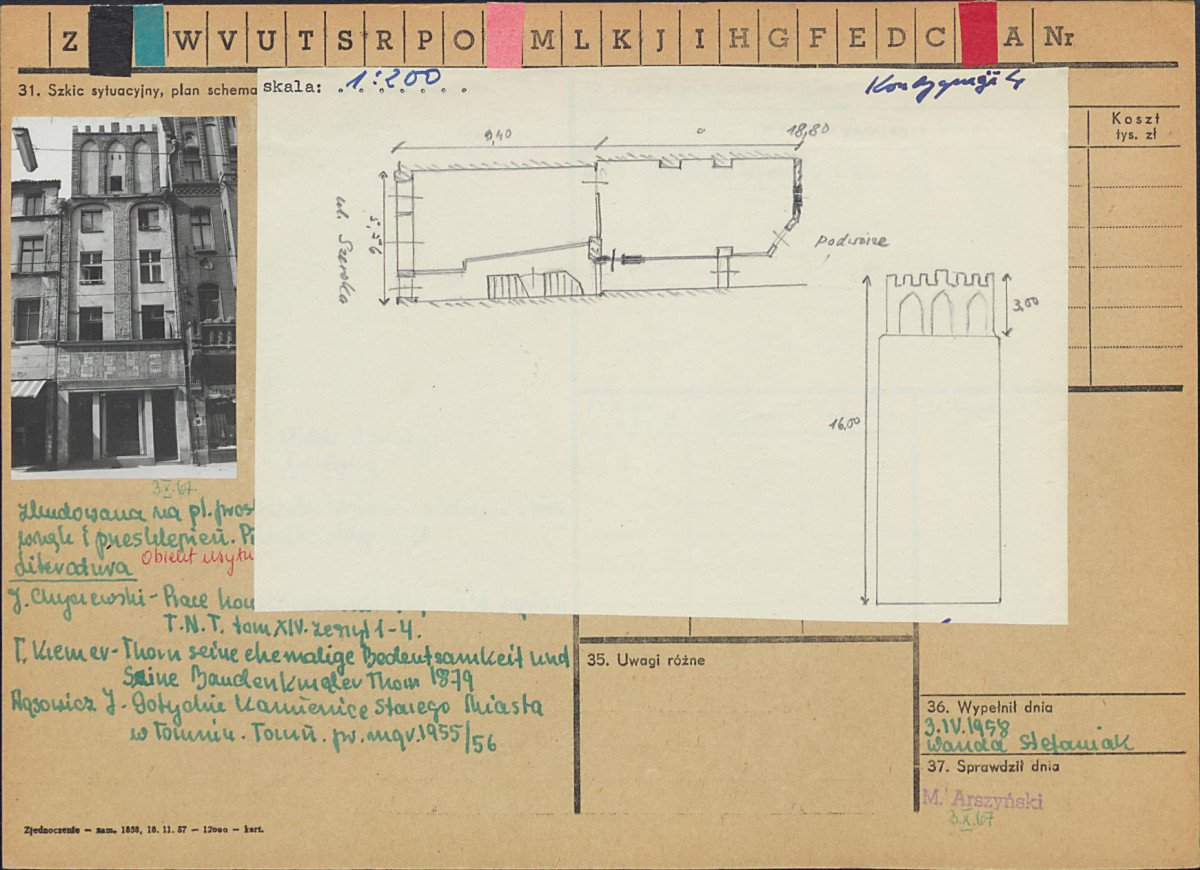 Z W V U T S R P O M L K J I H G F E D C A Nr
31. Szkic sytuacyjny, plan schema
skala: 1:200
Kondygnacji 4
Koszt
tys. zł
9,40
18,80
ul. Szeroka
5,56
podwórze
3,00
16,00
3.X.67
Zbudowana na pl. prost
wnęk i przesklepień.
Obiekt usytu
Literatura
J. Chyczewski - Prace
T.N.T. tom XIV. zeszyt 1-4.
Thorn seine ehemalige Bedeutsamkeit und
Seine Baudenkmäler Thorn 1879
Wąsowicz J. Gotyckie Kamienice Starego Miasta
w Toruniu. Toruń. pr. mgr. 1955/56
35. Uwagi różne
36. Wypełnił dnia
3.IV.1958
Wanda Stefaniak
37. Sprawdził dnia
M. Arszyński
3.X.67
Zjednoczenie — zam. 1858, 18. 11. 57 — 12000 — kart.